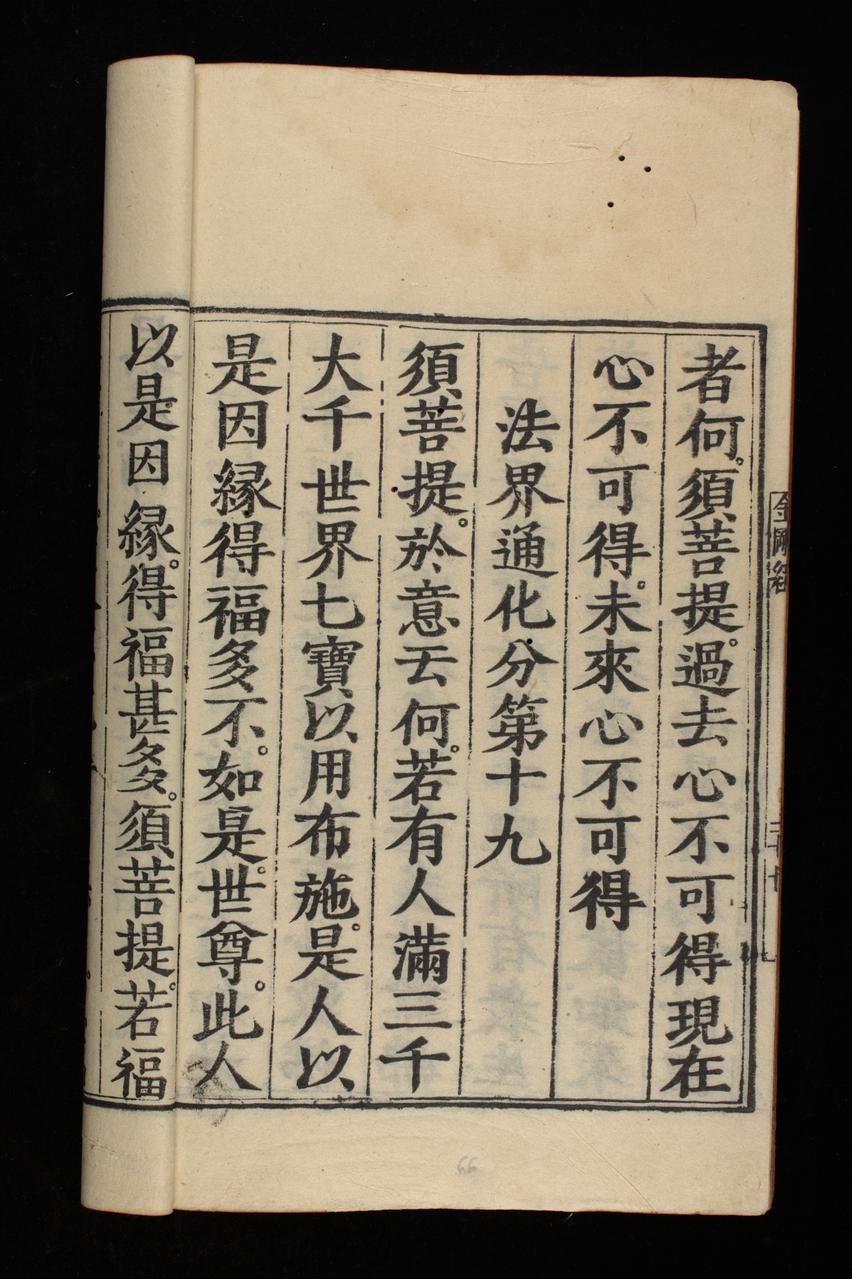 者何。須菩提。過去心不可得現在
心不可得。未來心不可得
法界通化分第十九
須菩提。於意云何。若有人滿三千
大千世界七寶以用布施。是人以
是因緣得福多不。如是。世尊。此人
以是因緣。得福甚多。須菩提。若福
金剛經